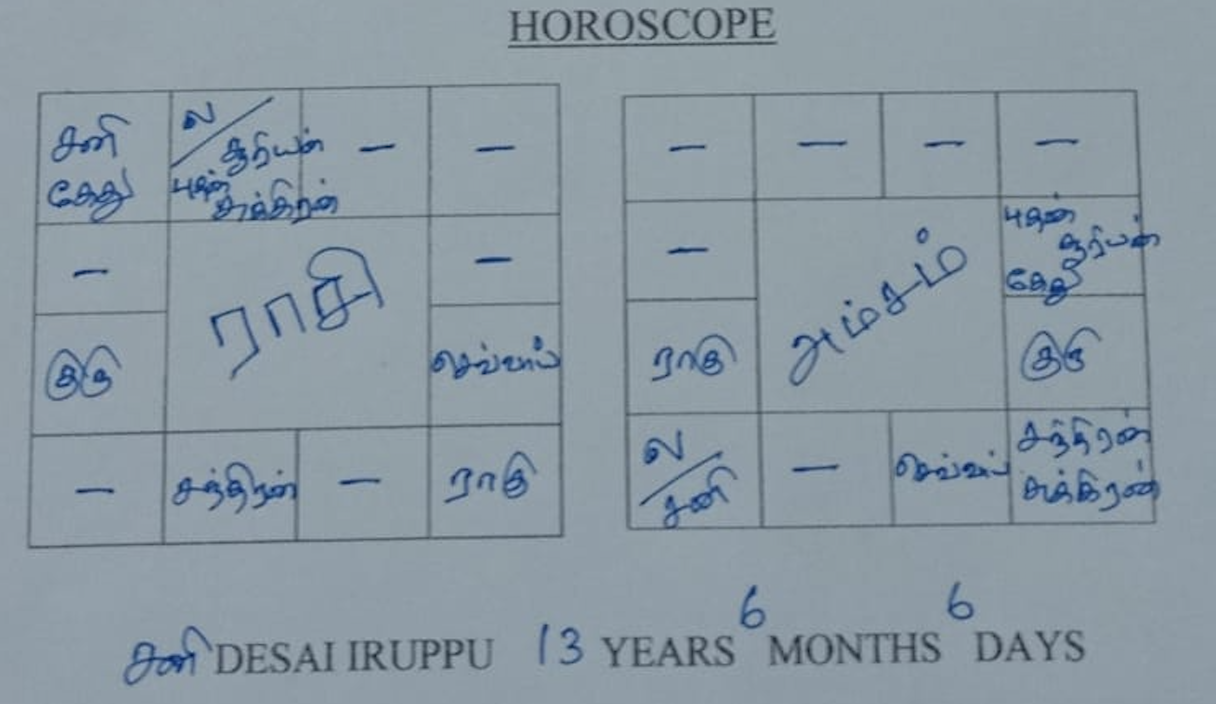 HOROSCOPE
சனி
கேது
ல/
சூரியன்
புதன்
சுக்கிரன்
—
—
—
ராசி
—
குரு
செவ்வாய்
—
சந்திரன்
—
ராகு
—
—
—
—
—
அம்சம்
புதன்
சூரியன்
கேது
ராகு
குரு
ல/
சனி
—
செவ்வாய்
சந்திரன்
சுக்கிரன்
சனி DESAI IRUPPU 13 YEARS 6 MONTHS 6 DAYS